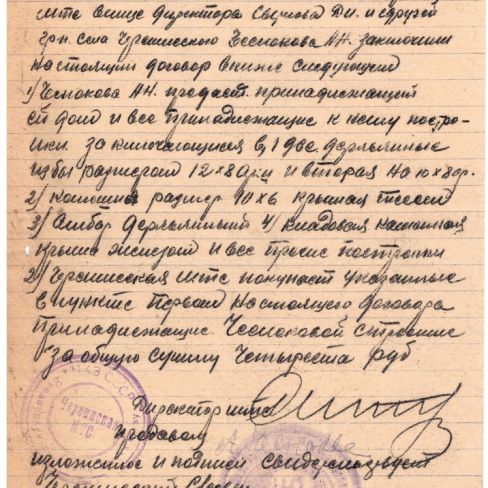 мтс влице директора Свечкова Дн. и сдругой
грн. села Черемисского Чеснокова А.Н. заключили
настоящий договор внижеследующем
1) Чеснокова А.Н. продает принадлежащий
ей дом и все принадлежащие к нему постро-
йки. заключающиеся в, 1 две деревянные
избы размером 12х8 арш и вторая на 10х8 ар.
2) Конюшня размер 10х6 крышая тесом
3) Амбар деревянный 4) кладовая каменная
крыша железом и все прочие постройки
2) Черемисская мтс покупает указанные
в пункте первом настоящего договора
принадлежащие Чесноковой строение
за общую сумму Четыреста руб
Директор мтс
продавец
изложенное и подписей свидетельствует
Черемисская
МТС
Н.К.З. С.С.С.Р.